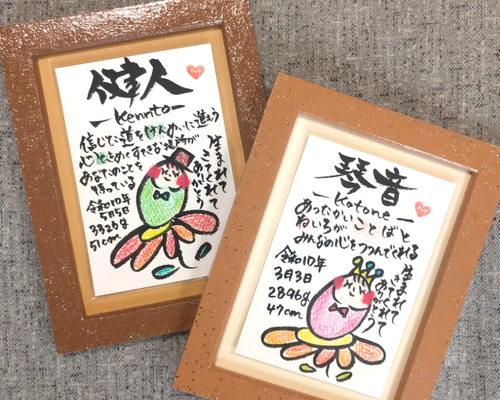 健人
—Kennto—
信じた道をけんめいに進もう
心ときめくすてきな場所が
あなたのことを
待っている
令和10年
5月5日
3320g
51cm
生まれて
きてくれて
ありがとう
琴音
—Kotone—
あったかいことばと
ねいろが
みんなの心をつつんでくれる
令和10年
3月3日
2896g
47cm
生まれて
きてくれて
ありがとう